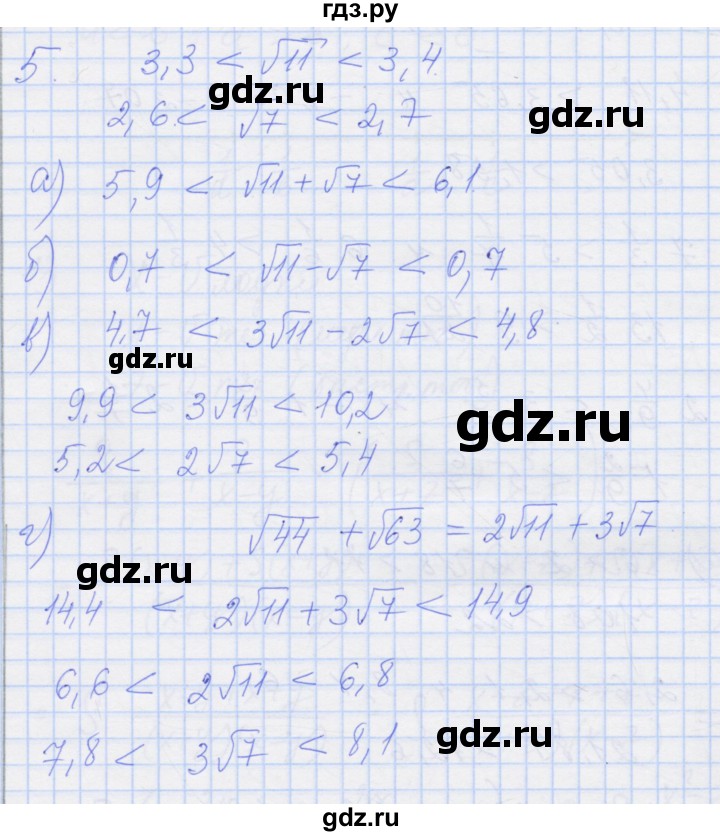 гдз.ру
5. 3,3 < √11 < 3,4
gdz.ru
2,6 < √7 < 2,7
gdz.ru
а) 5,9 < √11 + √7 < 6,1
б) 0,7 < √11 - √7 < 0,7
в) 4,7 < 3√11 - 2√7 < 4,8
gdz.ru
9,9 < 3√11 < 10,2
gdz.ru
5,2 < 2√7 < 5,4
г) √44 + √63 = 2√11 + 3√7
gdz.ru
14,4 < 2√11 + 3√7 < 14,9
6,6 < 2√11 < 6,8
gdz.ru
7,8 < 3√7 < 8,1
gdz.ru